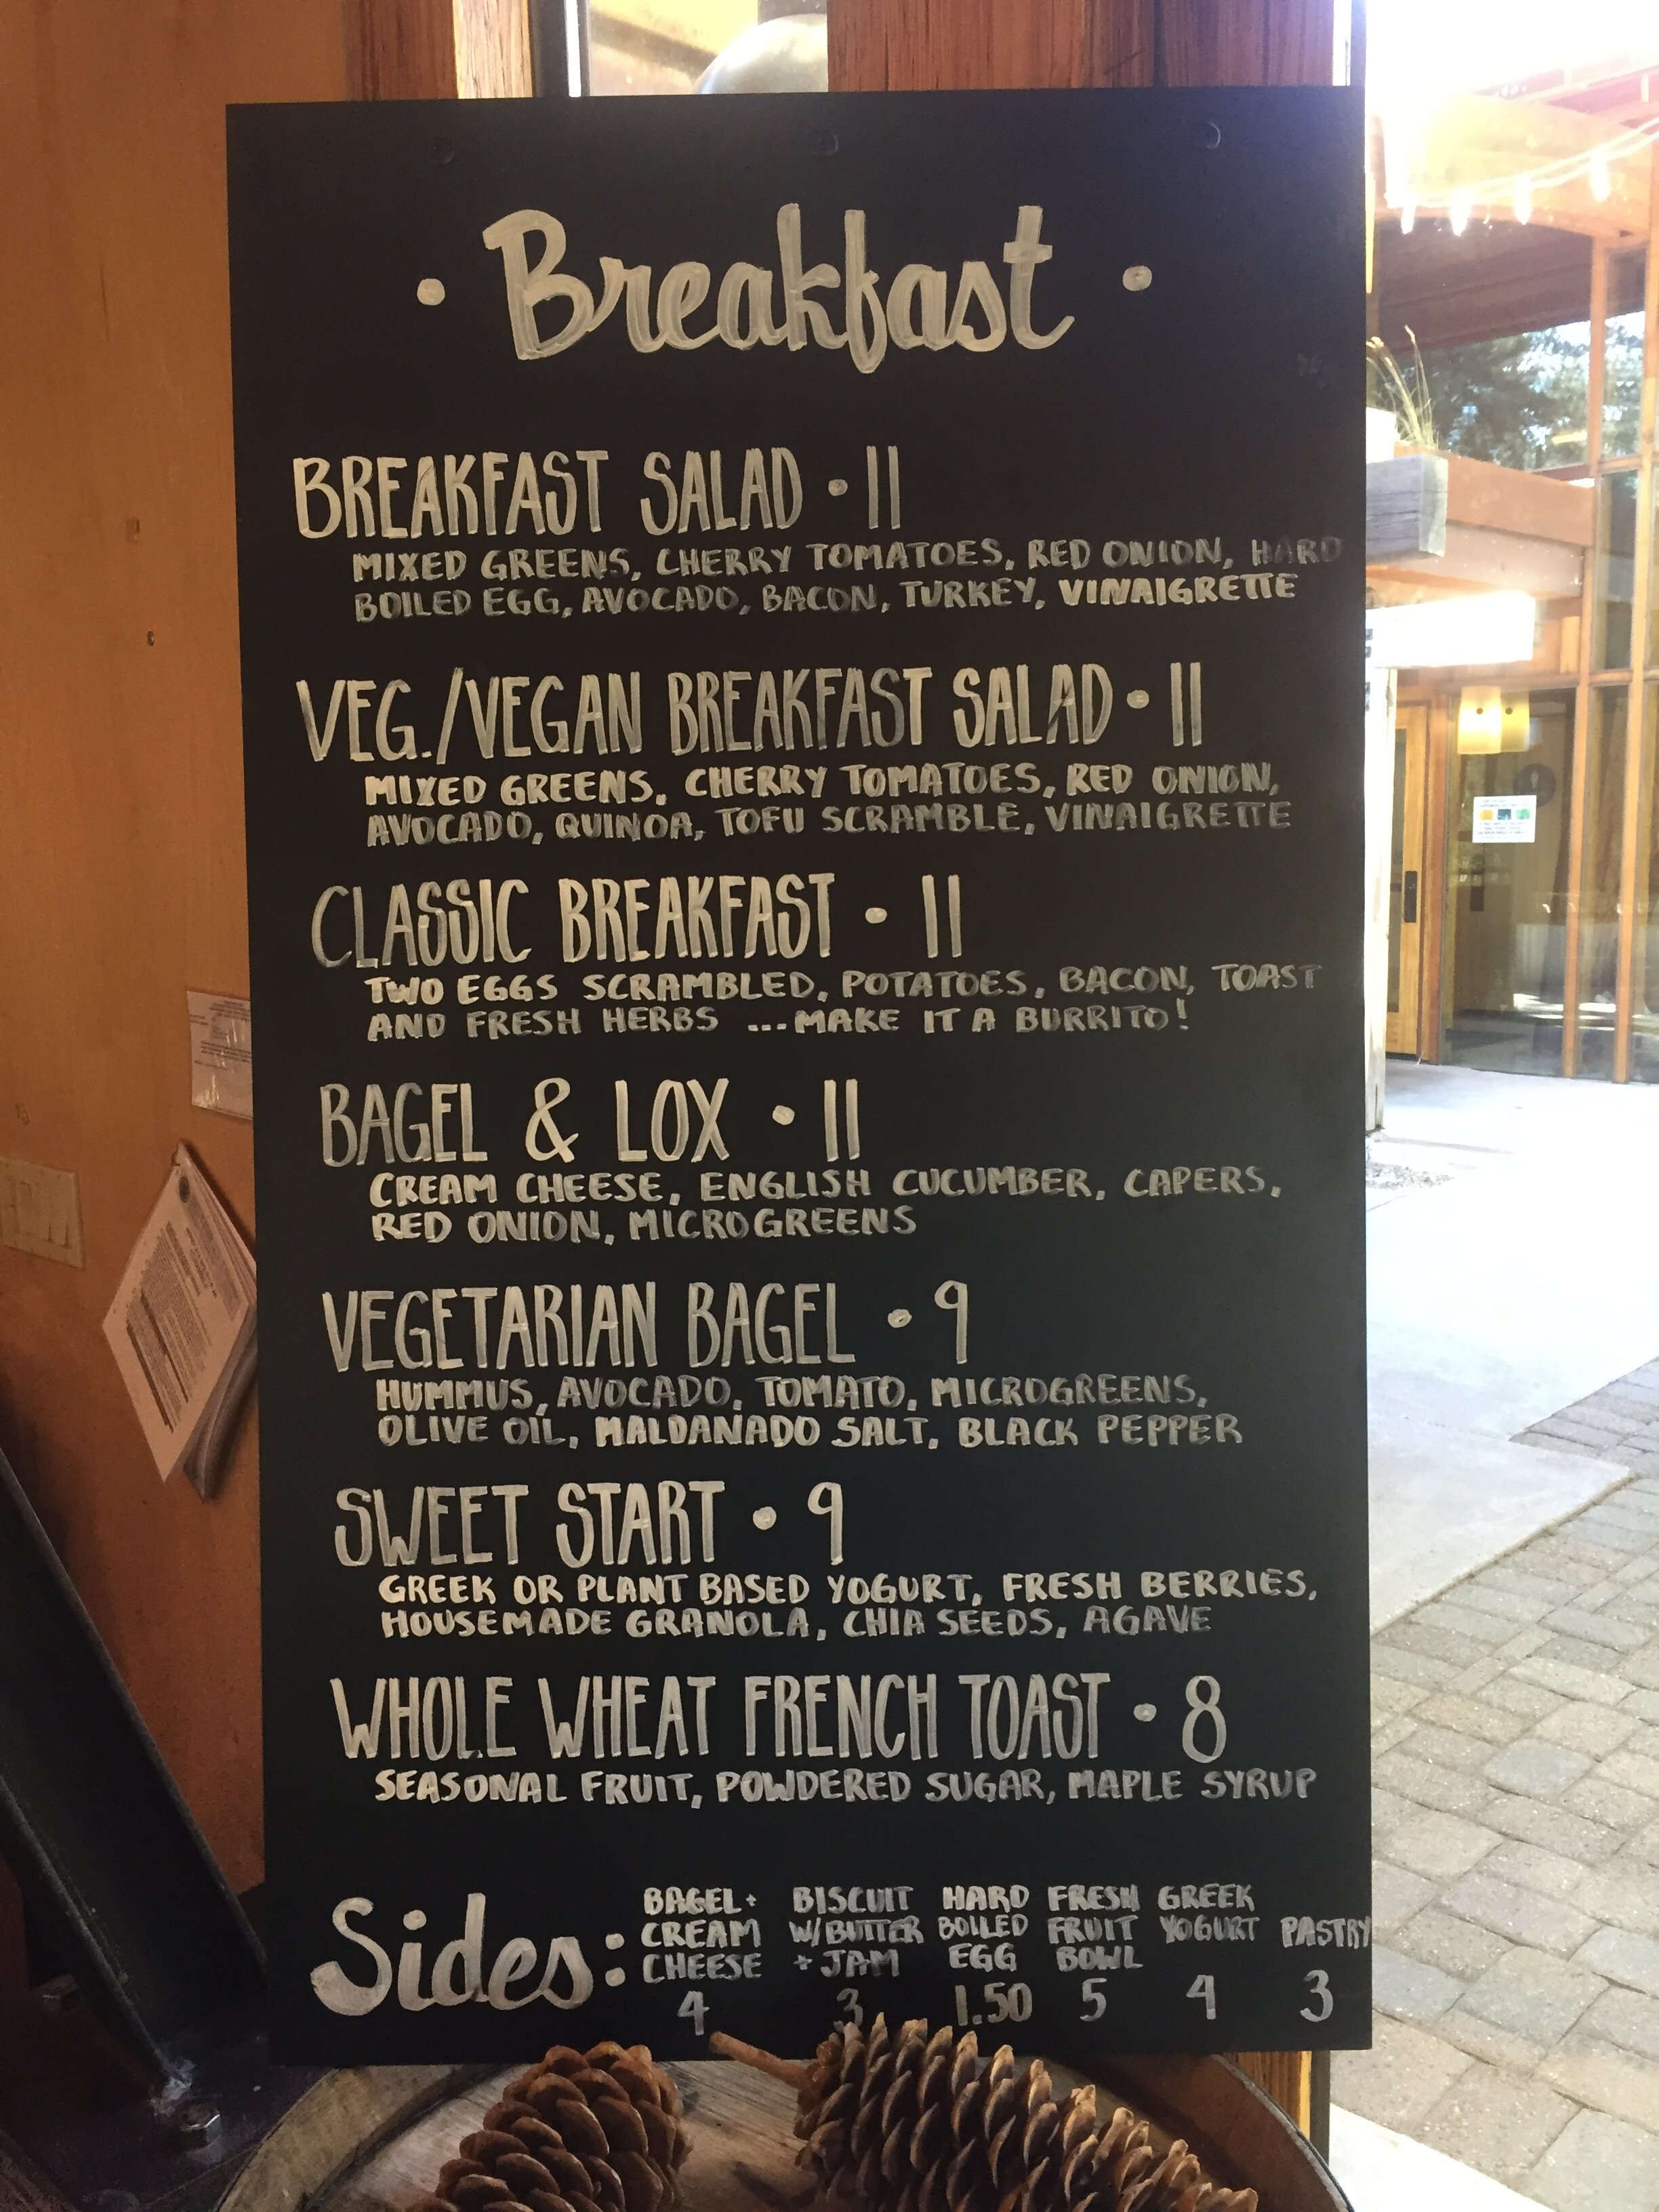 • Breakfast •
BREAKFAST SALAD • 11
MIXED GREENS, CHERRY TOMATOES, RED ONION, HARD
BOILED EGG, AVOCADO, BACON, TURKEY, VINAIGRETTE
VEG./VEGAN BREAKFAST SALAD • 11
MIXED GREENS, CHERRY TOMATOES, RED ONION,
AVOCADO, QUINOA, TOFU SCRAMBLE, VINAIGRETTE
CLASSIC BREAKFAST • 11
TWO EGGS SCRAMBLED, POTATOES, BACON, TOAST
AND FRESH HERBS ...MAKE IT A BURRITO!
BAGEL & LOX • 11
CREAM CHEESE, ENGLISH CUCUMBER, CAPERS,
RED ONION, MICROGREENS
VEGETARIAN BAGEL • 9
HUMMUS, AVOCADO, TOMATO, MICROGREENS,
OLIVE OIL, MALDANADO SALT, BLACK PEPPER
SWEET START • 9
GREEK OR PLANT BASED YOGURT, FRESH BERRIES,
HOUSEMADE GRANOLA, CHIA SEEDS, AGAVE
WHOLE WHEAT FRENCH TOAST • 8
SEASONAL FRUIT, POWDERED SUGAR, MAPLE SYRUP
Sides:
BAGEL +
CREAM
CHEESE
4
BISCUIT
W/BUTTER
+ JAM
3
HARD
BOILED
EGG
1.50
FRESH
FRUIT
BOWL
5
GREEK
YOGURT
4
PASTRY
3